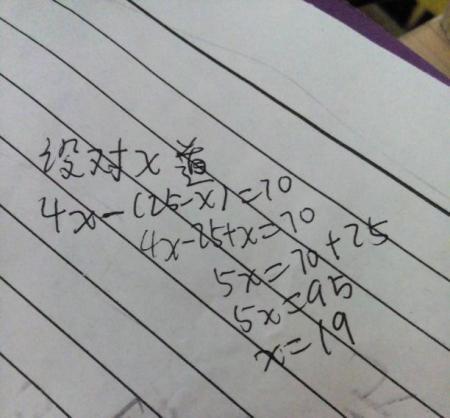 设对x道
4x-(25-x)=70
4x-25+x=70
5x=70+25
5x=95
x=19